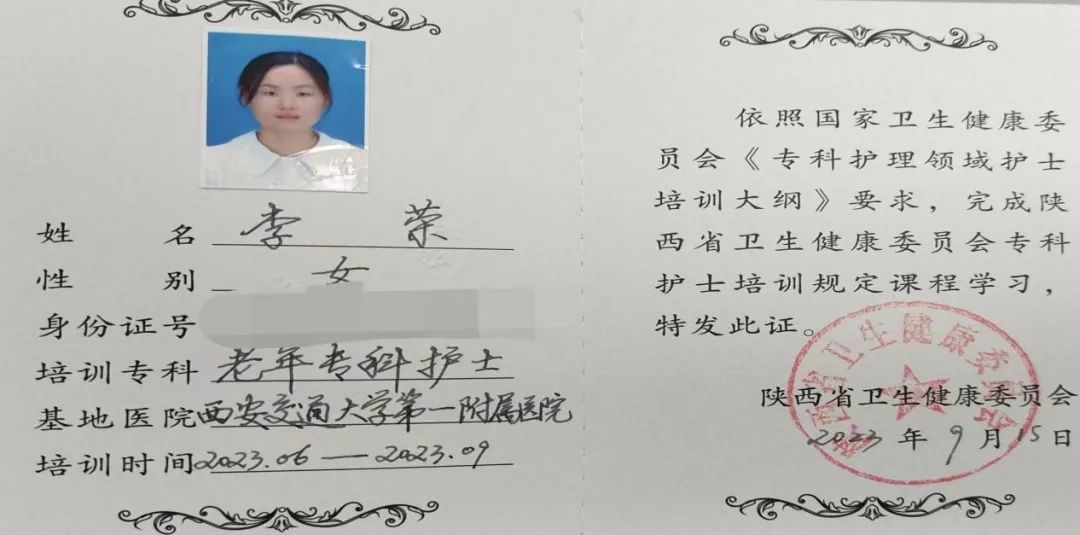 姓 名 李 荣
性 别 女
身份证号
培训专科 老年专科护士
基地医院 西安交通大学第一附属医院
培训时间 2023.06 — 2023.09
依照国家卫生健康委
员会《专科护理领域护士
培训大纲》要求，完成陕
西省卫生健康委员会专科
护士培训规定课程学习，
特发此证。
陕西省卫生健康委员会
陕西省卫生健康委员会
2023 年 9 月 15 日